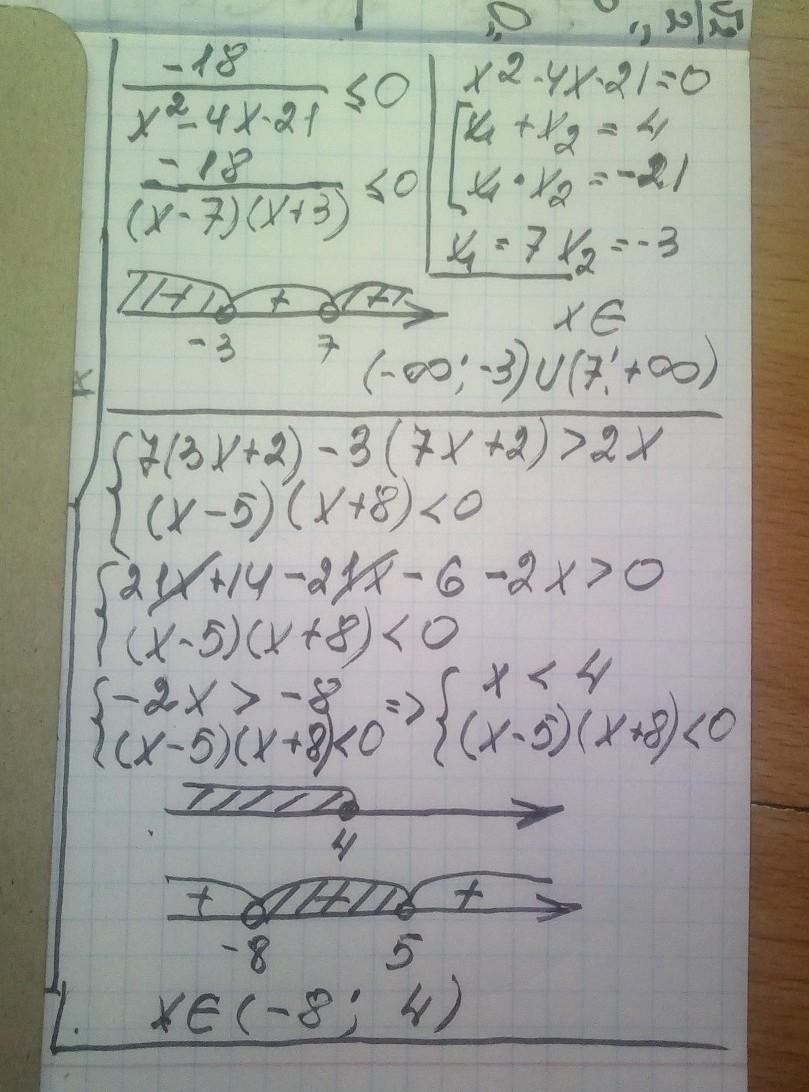 -18 / (x² - 4x - 21) ≤ 0
-18 / ((x-7)(x+3)) ≤ 0
-3 7
x² - 4x - 21 = 0
[ x₁ + x₂ = 4
x₁ · x₂ = -21
x₁ = 7 x₂ = -3
x ∈
(-∞; -3) ∪ (7; +∞)
{ 7(3x+2) - 3(7x+2) > 2x
(x-5)(x+8) < 0
{ 21x + 14 - 21x - 6 - 2x > 0
(x-5)(x+8) < 0
{ -2x > -8 => { x < 4
(x-5)(x+8) < 0 (x-5)(x+8) < 0
4
+ +
-8 5
x ∈ (-8; 4)